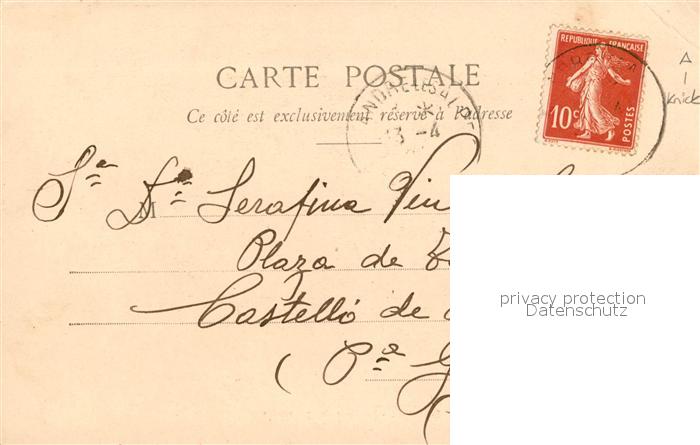 CARTE POSTALE
Ce côté est exclusivement réservé à l'adresse
REPUBLIQUE FRANÇAISE
10c
POSTES
13 -4
A
1
Knick
Sra Dña Serafina
M
Plaza de
Castelló de
(Pª G
privacy protection
Datenschutz